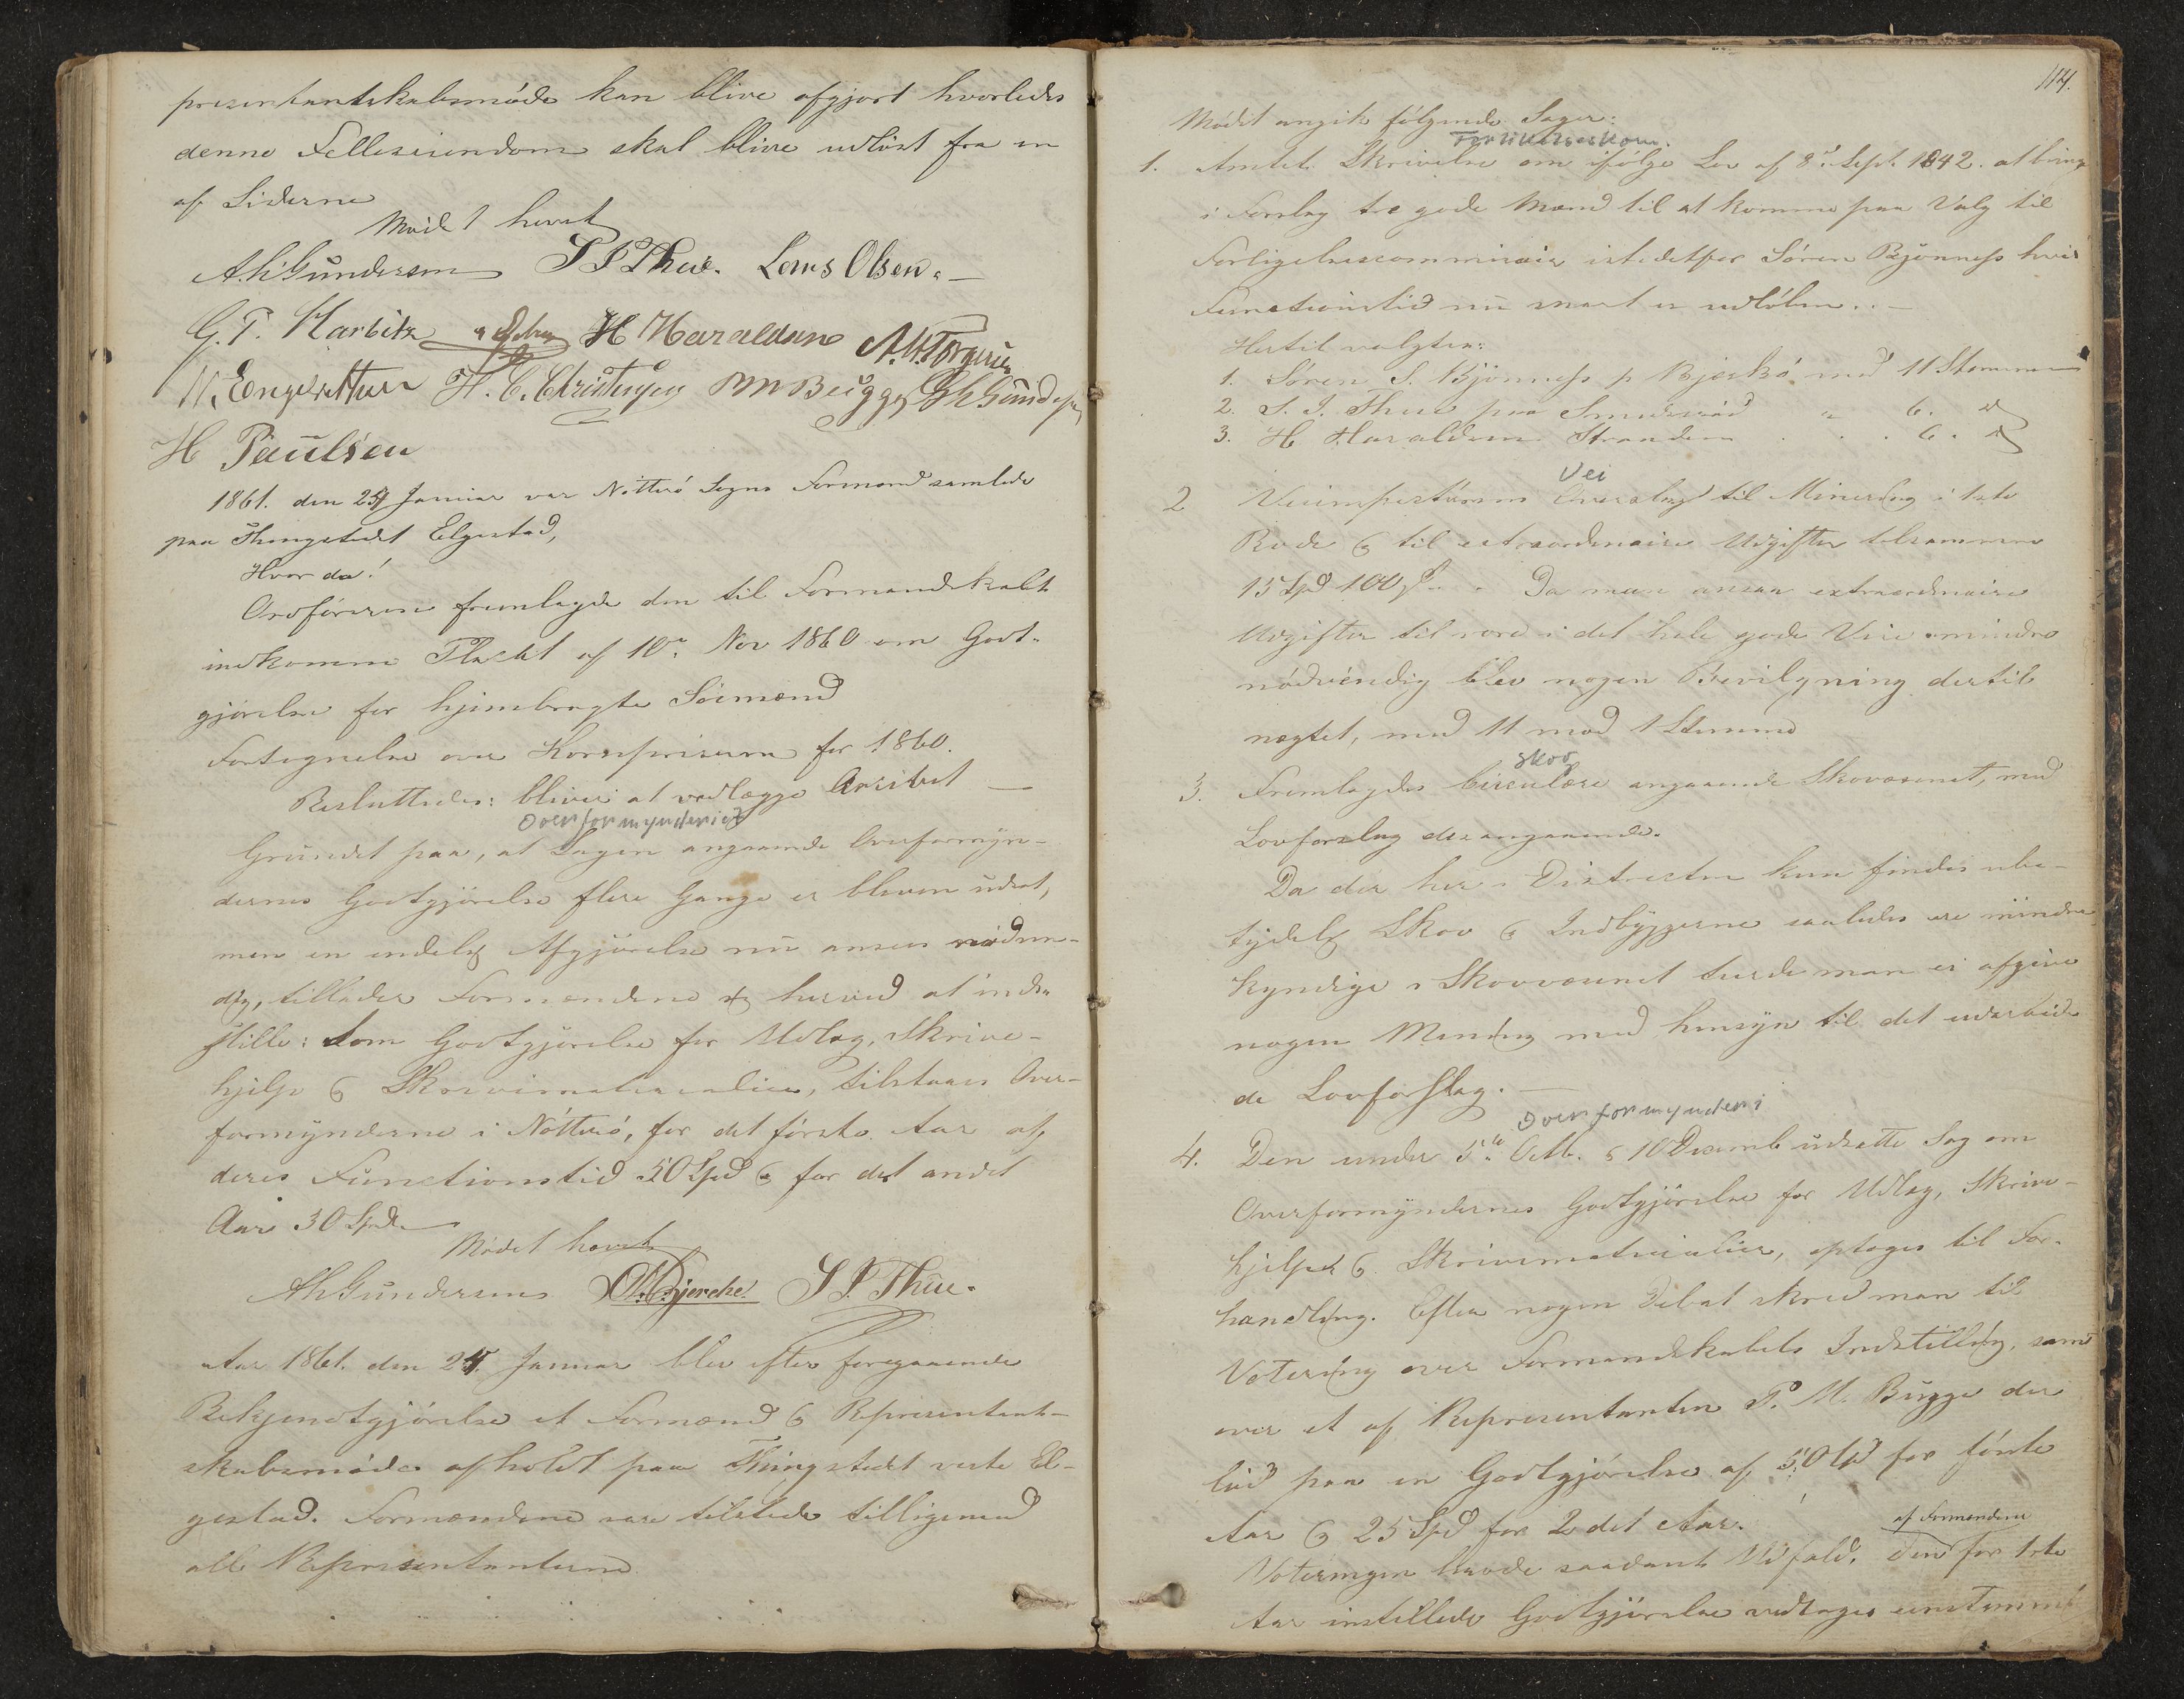 præsentantskabsmøde kan blive afgjort hvorledes
denne Felleseiendom skal blive udløst fra en
af Siderne
Mødet hævet
A.H. Gundersen S J Thue. Lars Olsen.
G. T. Harbitz H Haraldsen A.M. Torgersen
H. C. Christensen P M Bugge G H Gundersen
H Paulsen
1861. den 24 Januar var Nøtterø Sogns Formænd samlede
paa Thingstedet Elgestad,
Hvor da!
Ordføreren fremlagde den til Formandskabet
indkomne Placat af 10de Nov 1860 om Godt-
gjørelse for hjembragte Sømænd
Fortegnelse over Kornpriserne for 1860.
Besluttedes: bliver at vedlægge Arkivet
Overformynderiet
Grundet paa, at Sagen angaaende Overformyn-
dernes Godtgjørelse flere Gange er bleven udsat,
men en endelig Afgjørelse nu ansees nødven-
dig, tillader Formændene sig herved at ind-
stille: Som Godtgjørelse for Udlæg, Skrive-
hjelp & Skrivematerialier, tilstaaes Over-
formynderne i Nøtterø, for det første Aar af
deres Functionstid 50 Spd & for det andet
Aar 30 Spd.
Mødet hævet
AHGundersen O. Bjercke. S J. Thue.
Aar 1861. den 24. Januar blev efter foregaaende
Bekjendtgjørelse et Formænd & Repræsentant-
skabsmøde afholdt paa Thingstedet vestre El-
gestad. Formændene vare tilstede tilligemed
alle Repræsentanterne
114.
Mødet angik følgende Sager:
Forlikelseskom.
1. Amtets Skrivelse om ifølge Lov af 8de Sept. 1842. at bringe
i Forslag tre gode Mænd til at komme paa Valg til
Forligelsescommissair istedetfor Søren Bjønness hvis
Functionstid nu snart er udløben. -
Hertil valgtes:
1. Søren S. Bjønness p. Bjerkø med 11 Stemmer
2. S. J. Thue paa Smidsrød " 6. "
3. H Haraldsen Stranden . . . 6. "
Vei
2 Veiinspecteurens Overslag til Minering i 1ste
Rode & til extraordinaire Udgifter tilsammen
15 Spd 100 s. - Da man ansaa extraordinaire
Udgifter til vore i det hele gode Veie mindre
nødvendig blev nogen Bevilgning dertil
nægtet, med 11 mod 1 Stemme
Skog
3. Fremlagdes Circulære angaaende Skovvæsenet, med
Lovforslag desangaaende.
Da der her i Districtet kun findes ube-
tydelig Skov & Indbyggerne saaledes ere mindre
kyndige i Skovvæsenet turde man ei afgive
nogen Mening med hensyn til det udarbeide-
de Lovforslag.
Overformynderi
4. Den under 5te Octb. & 10 Decemb udsatte Sag om
Overformyndernes Godtgjørelse for Udlæg, Skrive-
hjelp & Skrivematerialier, optoges til For-
handling. Efter nogen Debat skred man til
Votering over Formandskabets Indstilling, samt
over et af Repræsentanten P. M. Bugge der
lød paa en Godtgjørelse af 50 Spd for første
Aar & 25 Spd for 2det Aar.
af Formændene
Voteringen havde saadant Udfald. Den for 1ste
Aar instillede Godtgjørelse vedtoges eenstemmi